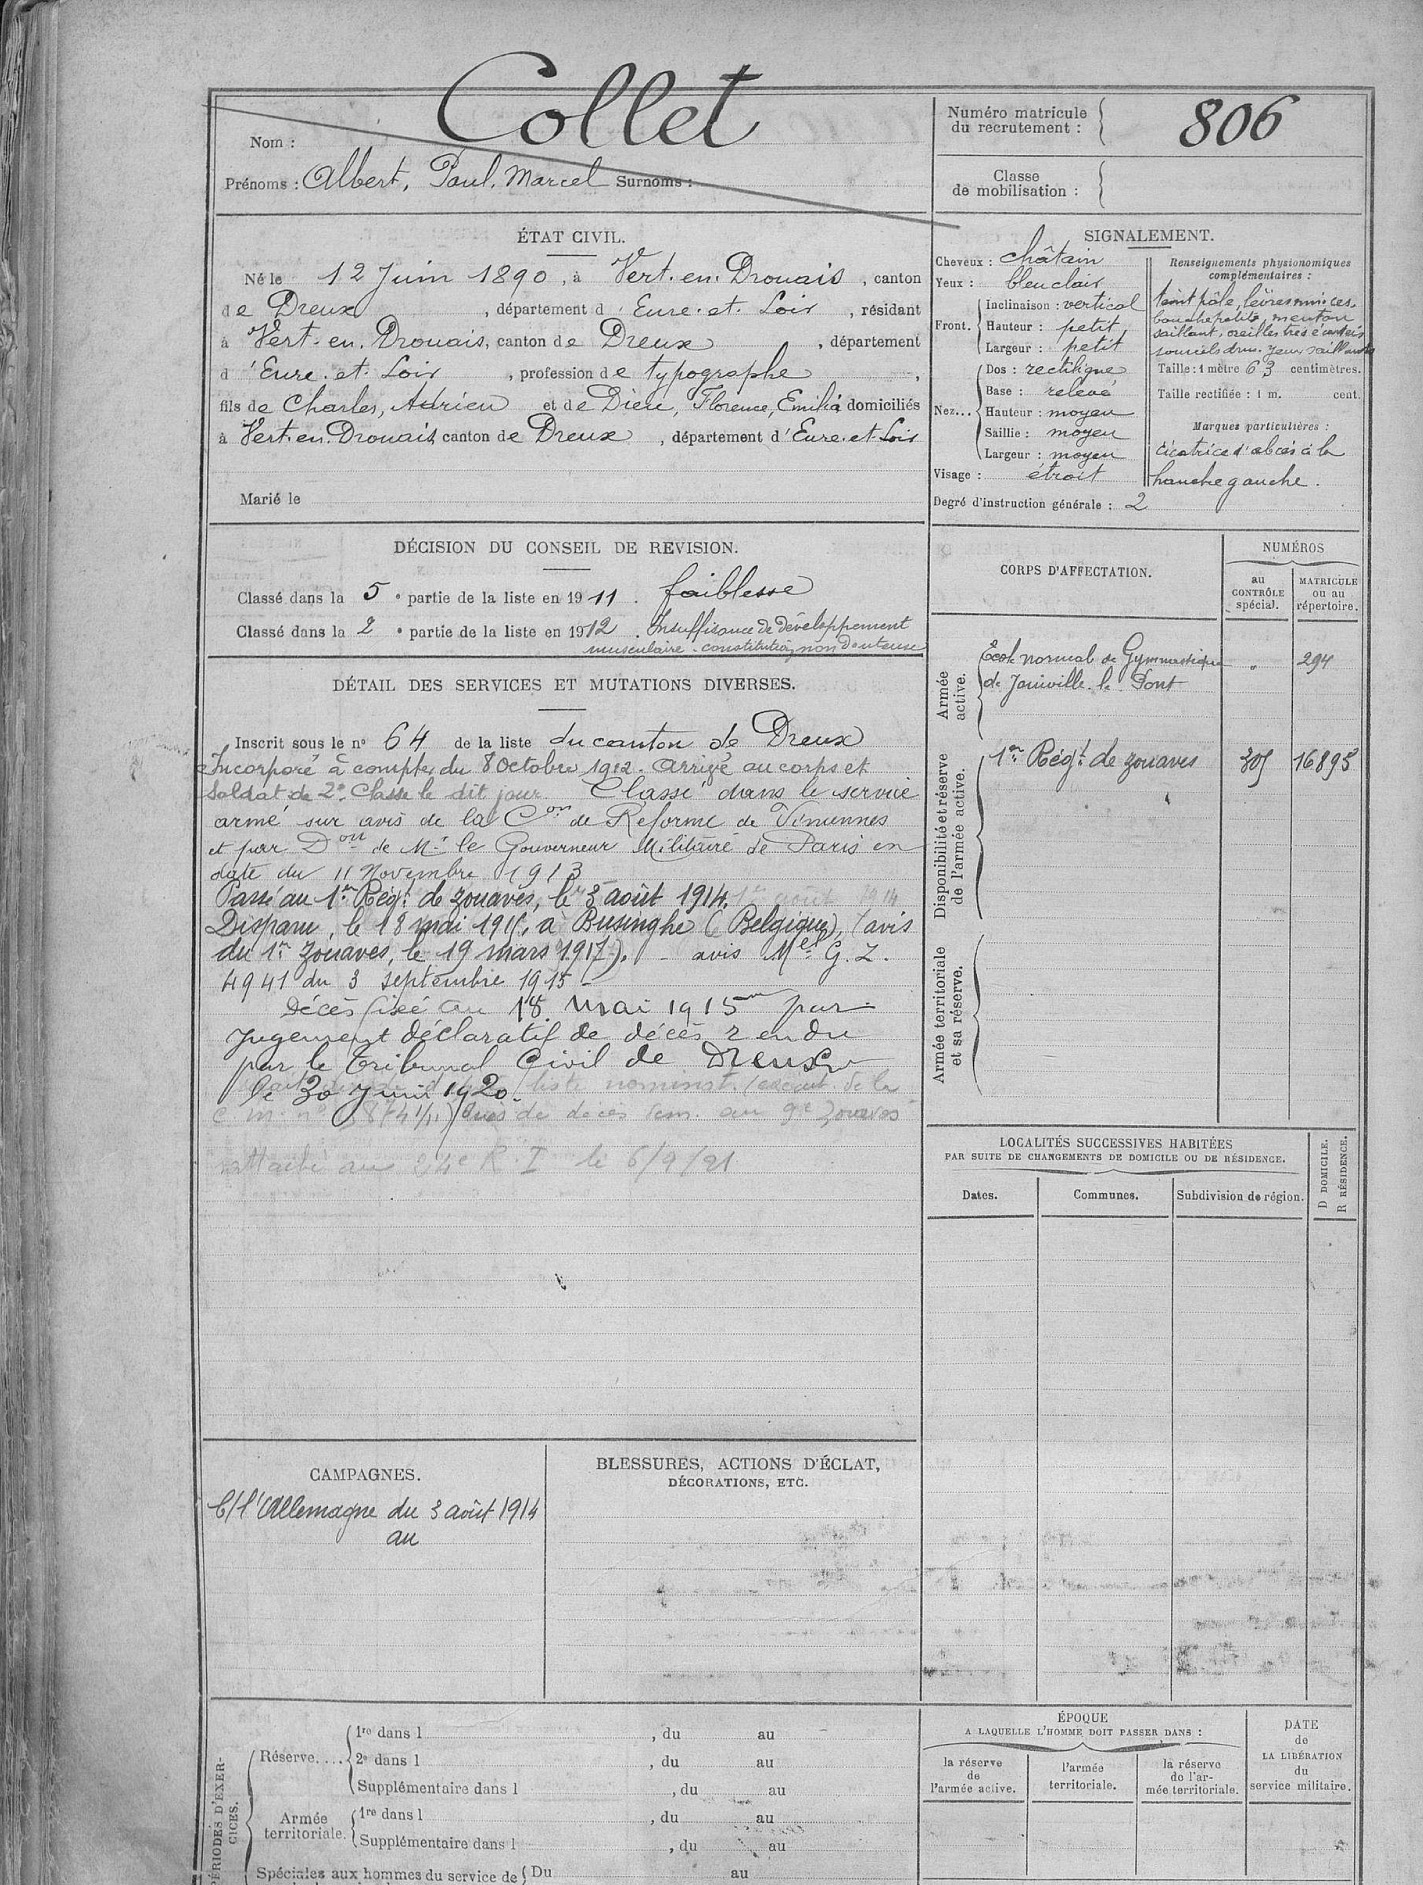 Collet
Nom :
Prénoms : Albert, Paul, Marcel Surnoms :
Numéro matricule du recrutement : 806
Classe de mobilisation :
ÉTAT CIVIL.
Né le 12 Juin 1890, à Vert-en-Drouais, canton
de Dreux, département d'Eure-et-Loir, résidant
à Vert-en-Drouais, canton de Dreux, département
d'Eure-et-Loir, profession de typographe,
fils de Charles, Adrien et de Dieu, Florence, Emilia domiciliés
à Vert-en-Drouais, canton de Dreux, département d'Eure-et-Loir
Marié le
SIGNALEMENT.
Cheveux : châtain
Yeux : bleu clair
Front. Inclinaison : vertical
Hauteur : petit
Largeur : petit
Nez... Dos : rectiligne
Base : relevé
Hauteur : moyen
Saillie : moyen
Largeur : moyen
Visage : étroit
Degré d'instruction générale : 2
Renseignements physionomiques
complémentaires :
teint pâle, lèvres minces,
bouche petite, menton
saillant, oreilles très écartées
sourcils drus. yeux saillants
Taille : 1 mètre 63 centimètres.
Taille rectifiée : 1 m. cent.
Marques particulières :
cicatrice d'abcès à la
hanche gauche.
DÉCISION DU CONSEIL DE REVISION.
Classé dans la 5e partie de la liste en 1911. faiblesse
Classé dans la 2e partie de la liste en 1912. Insuffisance de développement
musculaire - constitution non douteuse
DÉTAIL DES SERVICES ET MUTATIONS DIVERSES.
Inscrit sous le no 64 de la liste du canton de Dreux
Incorporé à compter du 8 Octobre 1912. Arrivé au corps et
soldat de 2e Classe le dit jour. Classé dans le service
armé sur avis de la Con de Réforme de Vincennes
et par Don de Mr le Gouverneur Militaire de Paris en
date du 11 Novembre 1913
Passé au 1er Régt de zouaves, le 3 août 1914. 1er août 1914
Disparu, le 18 mai 1915, à Businghe (Belgique), (avis
du 1er zouaves, le 19 mars 1917). - avis Mel G. Z.
4941 du 3 septembre 1915 -
Décès fixé au 18 mai 1915 par
Jugement déclaratif de décès rendu
par le Tribunal Civil de Dreux
le 30 Juin 1920.
liste nominat. (exécut. de la
c m no 1/11) avis de décès tem. au 9e Zouaves
Rattaché au 24e R I le 6/9/21
CORPS D'AFFECTATION.
NUMÉROS
au CONTRÔLE spécial.
MATRICULE ou au répertoire.
Armée active.
École normale de Gymnastique " 294
de Joinville-le-Pont
Disponibilité et réserve de l'armée active.
1er Régt de zouaves 305 16895
Armée territoriale et sa réserve.
LOCALITÉS SUCCESSIVES HABITÉES
PAR SUITE DE CHANGEMENTS DE DOMICILE OU DE RÉSIDENCE.
Dates. Communes. Subdivision de région.
D DOMICILE.
R RÉSIDENCE.
CAMPAGNES.
C/ l'Allemagne du 3 août 1914
au
BLESSURES, ACTIONS D'ÉCLAT,
DÉCORATIONS, ETC.
PÉRIODES D'EXERCICES.
Réserve.... 1re dans l , du au
2e dans l , du au
Supplémentaire dans l , du au
Armée territoriale. 1re dans l , du au
Supplémentaire dans l , du au
Spéciales aux hommes du service de Du au
ÉPOQUE
A LAQUELLE L'HOMME DOIT PASSER DANS :
la réserve de l'armée active.
l'armée territoriale.
la réserve de l'armée territoriale.
DATE
de
LA LIBÉRATION
du
service militaire.